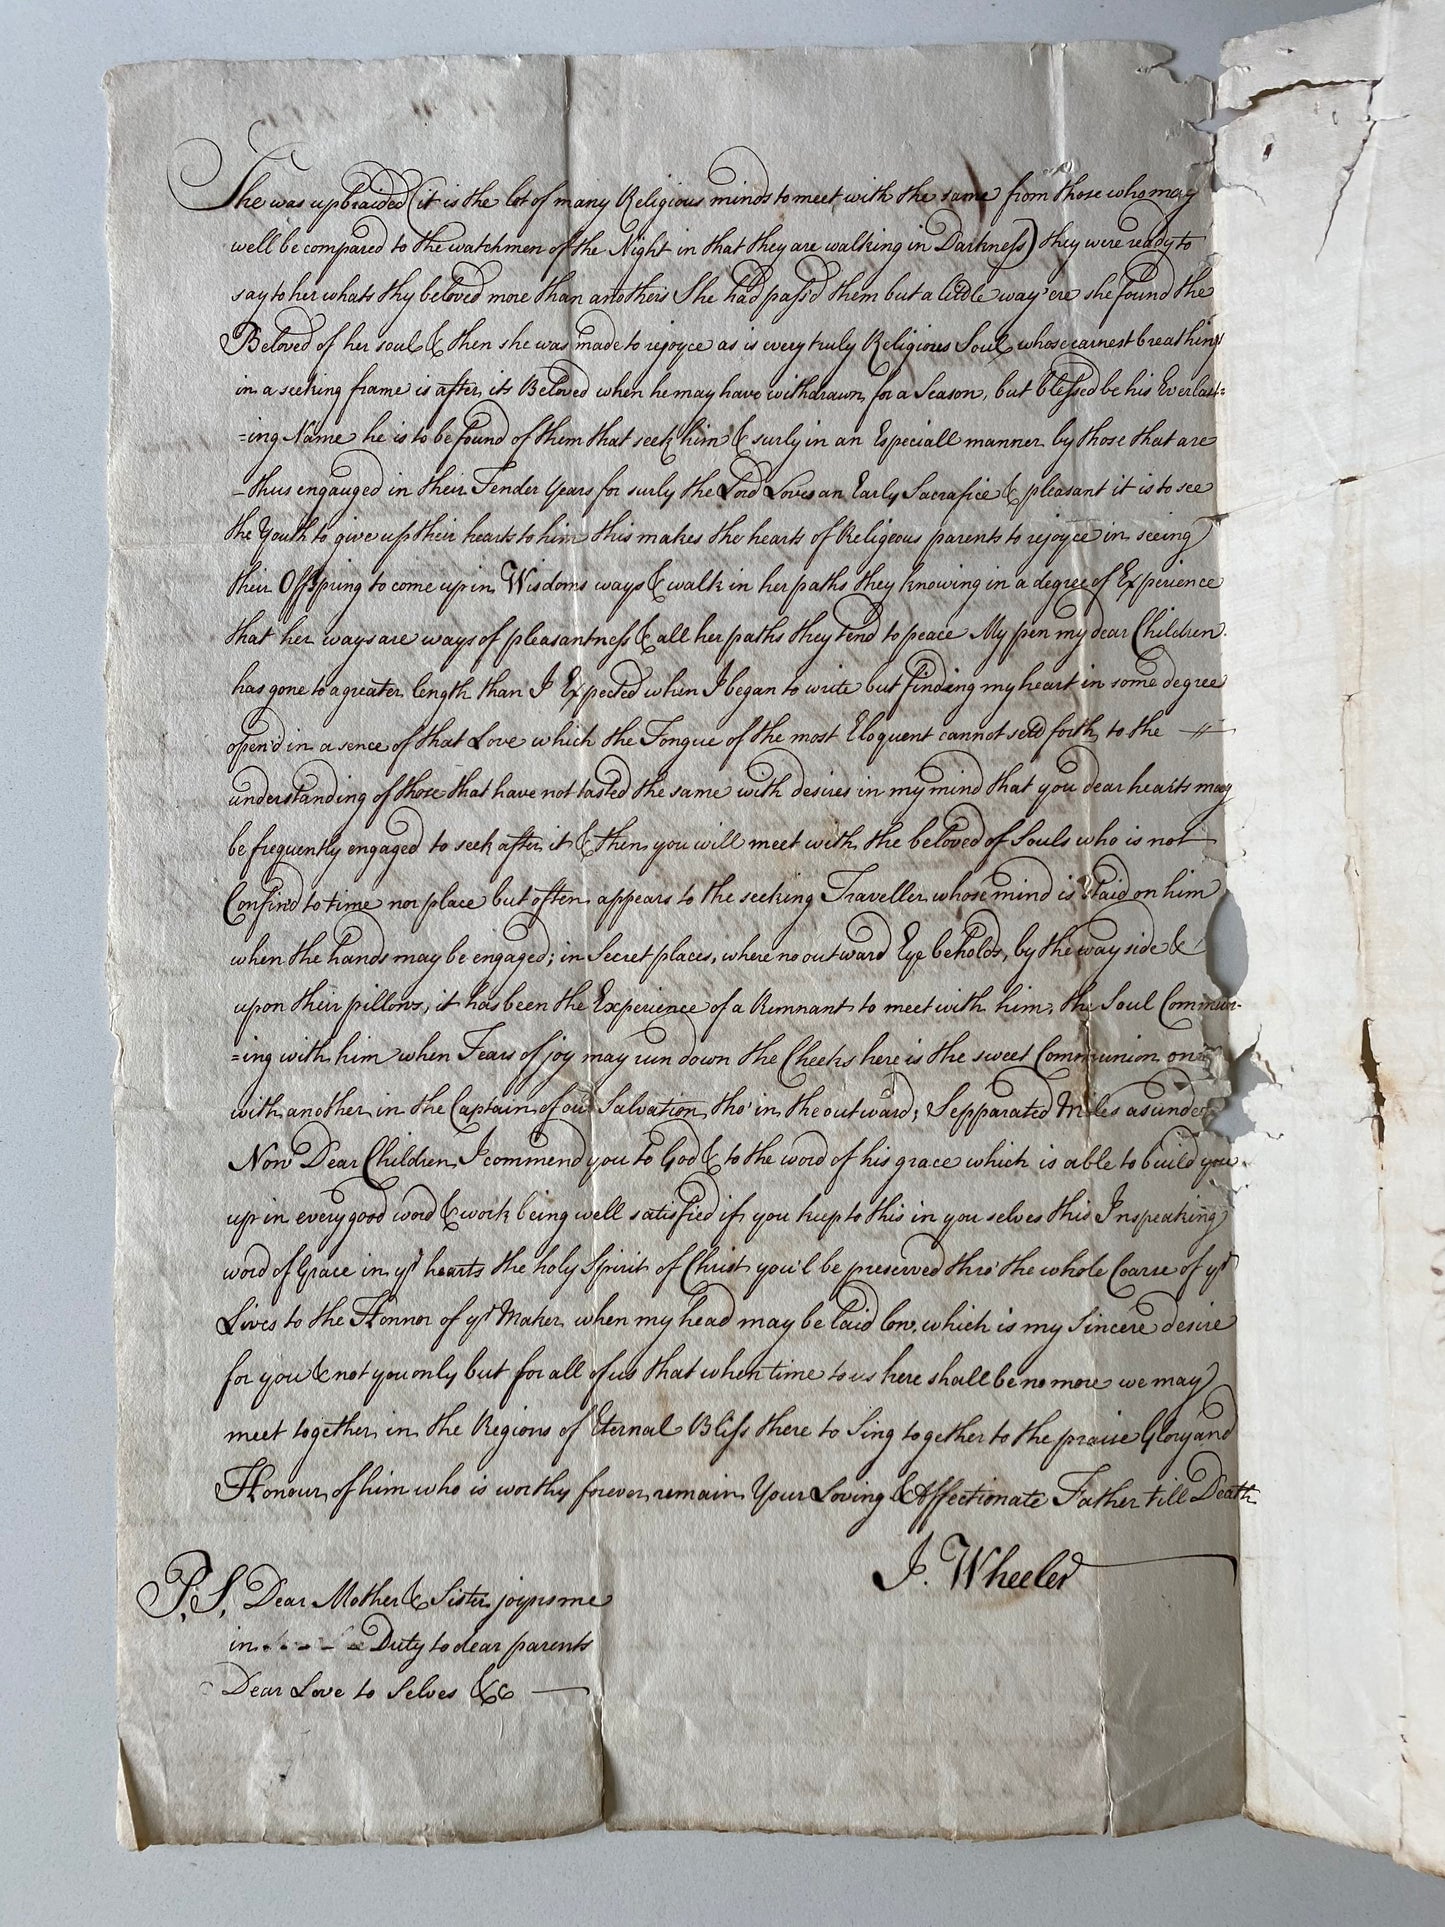 She was upbraided (it is the lot of many Religious minds to meet with the same from those who may
well be compared to the watchmen of the Night in that they are walking in Darkness) they were ready to
say to her whats thy beloved more than anothers She had pass'd them but a little way 'ere she found the
Beloved of her soul & then she was made to rejoyce as is every truly Religious Soul whose earnest breathing
in a seeking frame is after its Beloved when he may have withdrawn for a Season, but blessed be his Everlast=
=ing Name he is to be found of them that seek him & surly in an Especiall manner by those that are
-thus engauged in their Tender Years for surly the Lord Loves an Early Sacrafice & pleasant it is to see
the Youth to give up their hearts to him this makes the hearts of Religeous parents to rejoyce in seeing
their Offspring to come up in Wisdoms ways & walk in her paths they knowing in a degree of Experience
that her ways are ways of pleasantness & all her paths they tend to peace My pen my dear Children
has gone to a greater length than I Expected when I began to write but finding my heart in some degree
open'd in a sence of that Love which the Tongue of the most Eloquent cannot set forth to the
understanding of those that have not tasted the same with desires in my mind that you dear hearts may
be frequently engaged to seek after it & then you will meet with the beloved of Souls who is not
Confin'd to time nor place but often appears to the seeking Traveller whose mind is Staid on him
when the hands may be engaged; in Secret places, where no outward Eye beholds, by the way side &
upon their pillows, it has been the Experience of a Remnant to meet with him, the Soul Commun-
=ing with him when Tears of joy may run down the Cheeks here is the sweet Communion one
with another in the Captain of our Salvation tho' in the outward; Sepparated Miles asunder
Now Dear Children I commend you to God & to the word of his grace which is able to build you
up in every good word & work being well satisfied if you keep to this in you selves this Inspeaking
word of Grace in yr hearts the holy Spirit of Christ you'l be preserved thro' the whole Coarse of yr
Lives to the Honnor of yr Maker when my head may be laid low, which is my Sincere desire
for you & not you only but for all of us that when time to us here shall be no more we may
meet together in the Regions of Eternal Bliss there to Sing together to the praise Glory and
Honour of him who is worthy forever remain Your Loving & Affectionate Father till Death
J. Wheeler
P.S. Dear Mother & Sister joyns me
in Duty to dear parents
Dear Love to Selves &c